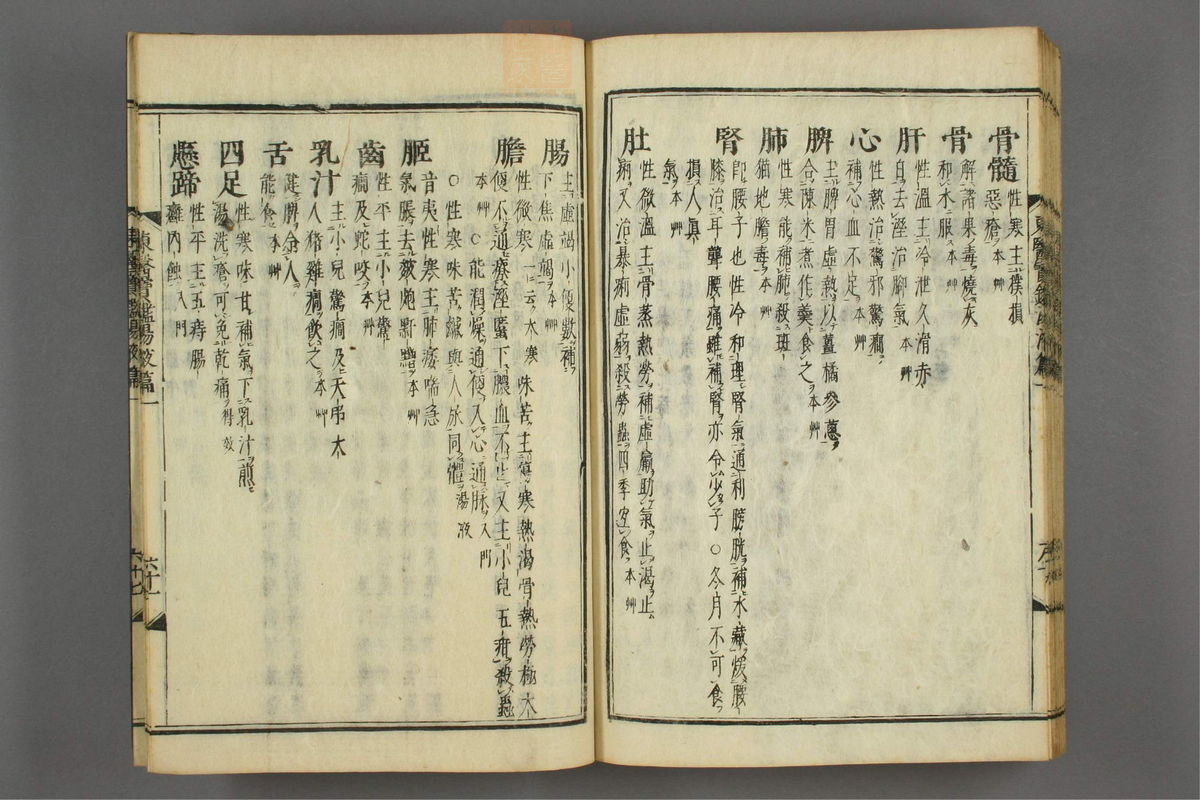 骨髓 性寒主撲損
惡瘡 本艸
骨 解諸果毒燒灰
和水服 本艸
肝 性溫主冷泄久滑赤
白去溼治脚氣 本艸
心 性熱治驚邪驚癎
補心血不足 本艸
脾 主脾胃虛熱以薑橘參葱
合陳米煮作羹食之 本艸
肺 性寒能補肺殺斑
猫地膽毒 本艸
腎 卽腰子也性冷和理腎氣通利膀胱補水藏煖腰
膝治耳聾腰痛雖補腎亦令少子○冬月不可食
損人眞
氣 本艸
肚 性微溫主骨蒸熱勞補虛羸助氣止渴止
痢又治暴痢虛弱殺勞蟲四季宜食 本艸
腸 主虛渴小便數補
下焦虛竭 本艸
膽 性微寒 一云大寒 味苦主傷寒熱渴骨熱勞極大
便不通療溼䘌下膿血不止又主小兒五疳殺蟲
本艸 ○能潤燥通便入心通脉 入門
○性寒味苦鹹與人尿同體 湯液
䐅 音夷性寒主肺痿喘急
氣脹去皴皰䵟䵳 本艸
齒 性平主小兒驚
癎及蛇咬 本艸
乳汁 主小兒驚癎及天吊大
人猪雞癎飮之 本艸
舌 健脾令人
能食 本艸
四足 性寒味甘補氣下乳汁煎
湯洗瘡可免乾痛 得效
懸蹄 性平主五痔腸
癰內蝕 入門
東醫寶鑑湯液篇一
六十七